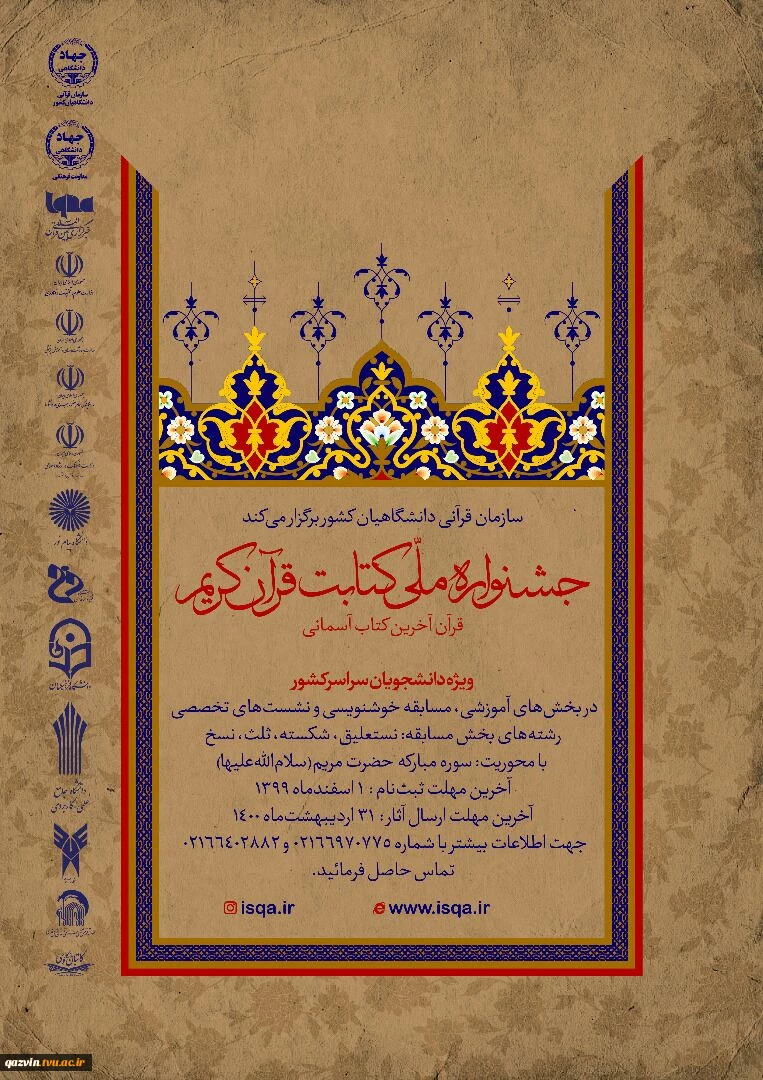 سازمان قرآنی دانشگاهیان کشور برگزار می‌کند
جشنواره ملّی کتابت قرآن کریم
قرآن آخرین کتاب آسمانی
ویژه دانشجویان سراسر کشور
در بخش‌های آموزشی، مسابقه خوشنویسی و نشست‌های تخصصی
رشته‌های بخش مسابقه: نستعلیق، شکسته، ثلث، نسخ
با محوریت: سوره مبارکه حضرت مریم (سلام‌الله‌علیها)
آخرین مهلت ثبت‌نام : ۱ اسفندماه ۱۳۹۹
آخرین مهلت ارسال آثار : ۳۱ اردیبهشت‌ماه ۱۴۰۰
جهت اطلاعات بیشتر با شماره ۰۲۱۶۶۹۷۰۷۷۵ و ۰۲۱۶۶۴۰۲۸۸۲
تماس حاصل فرمائید.
isqa.ir www.isqa.ir
جهاد
دانشگاهی
سازمان قرآنی
دانشگاهیان کشور
جهاد
دانشگاهی
معاونت فرهنگی
iqna
دانشگاه پیام نور
دانشگاه فرهنگیان
دانشگاه جامع
علمی کاربردی
qazvin.tvu.ac.ir